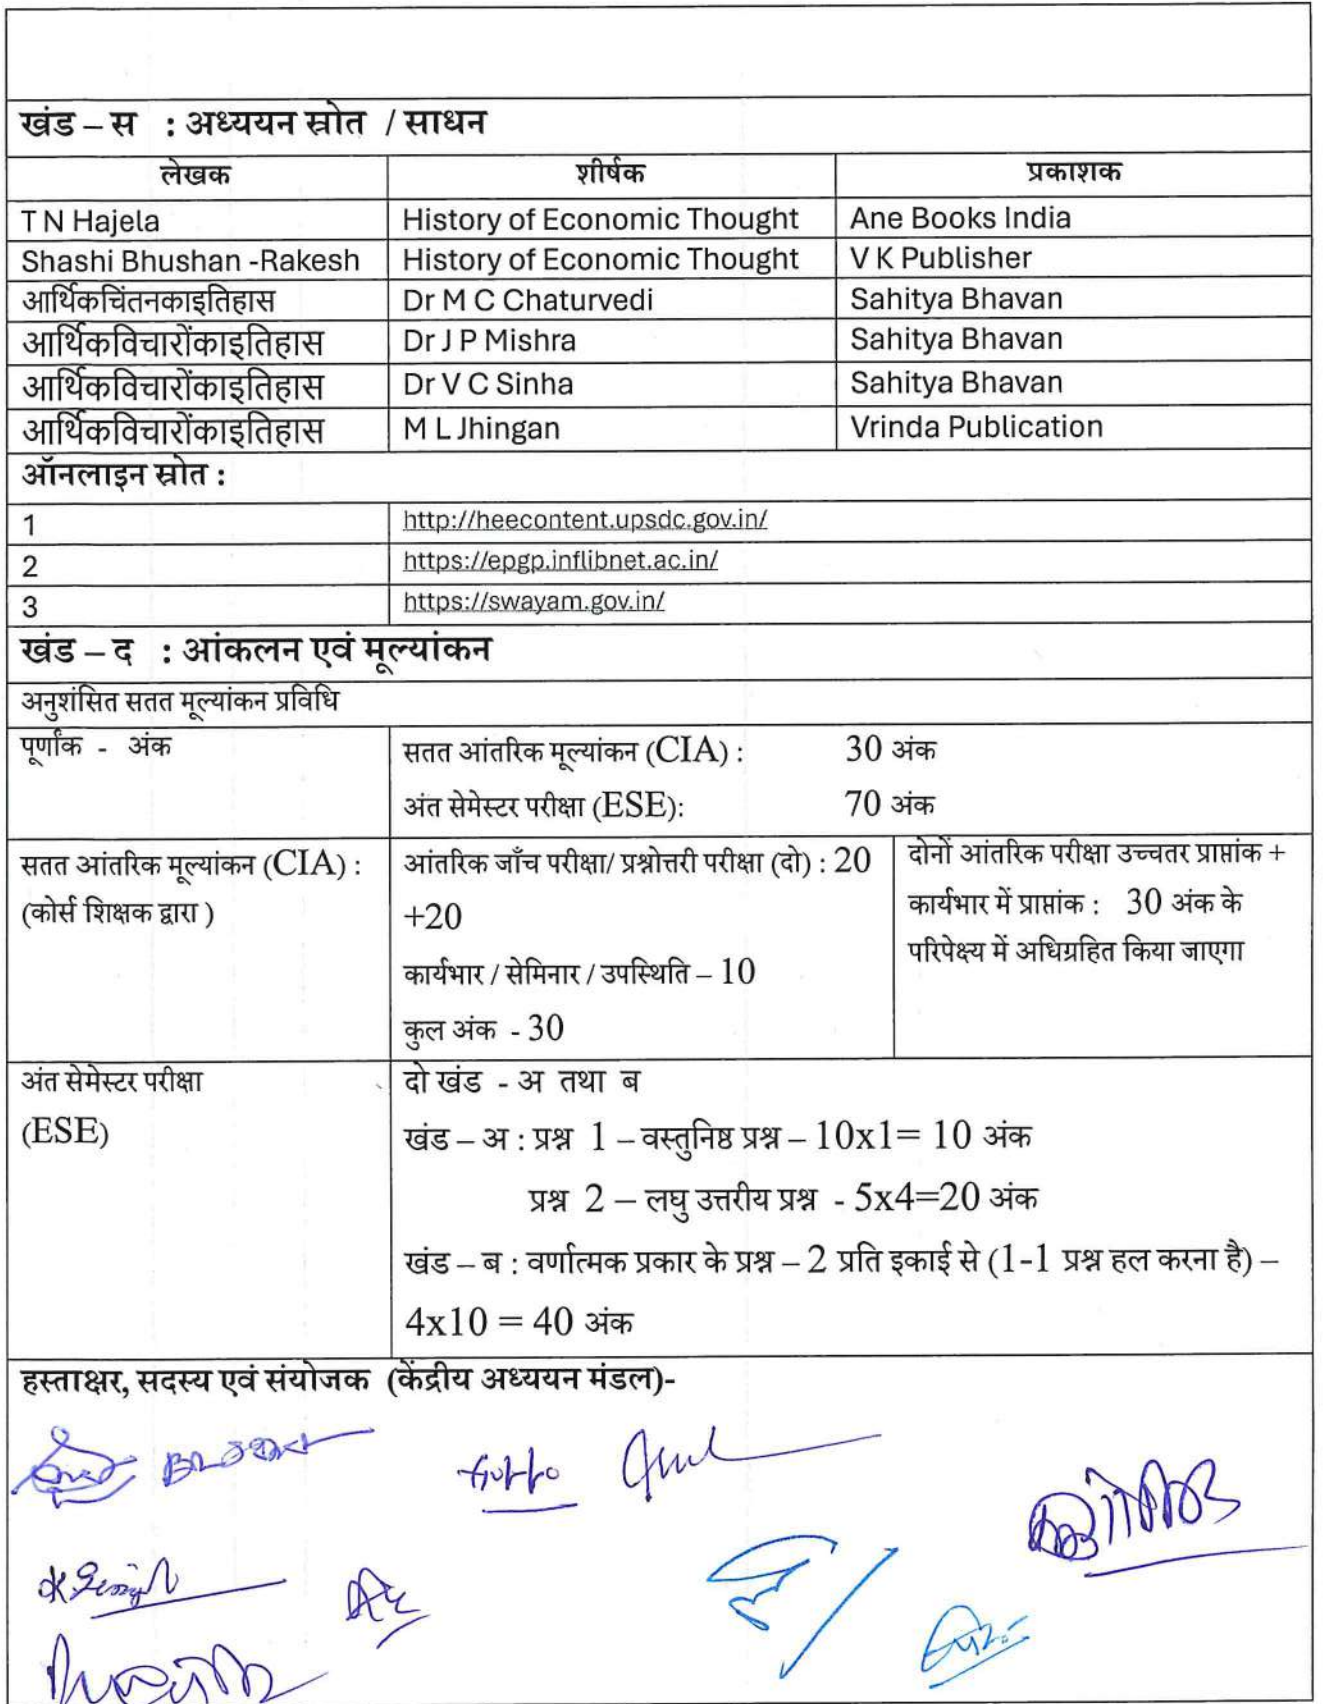 खंड – स : अध्ययन स्रोत / साधन
लेखक शीर्षक प्रकाशक
T N Hajela History of Economic Thought Ane Books India
Shashi Bhushan -Rakesh History of Economic Thought V K Publisher
आर्थिकचिंतनकाइतिहास Dr M C Chaturvedi Sahitya Bhavan
आर्थिकविचारोंकाइतिहास Dr J P Mishra Sahitya Bhavan
आर्थिकविचारोंकाइतिहास Dr V C Sinha Sahitya Bhavan
आर्थिकविचारोंकाइतिहास M L Jhingan Vrinda Publication
ऑनलाइन स्रोत :
1 http://heecontent.upsdc.gov.in/
2 https://epgp.inflibnet.ac.in/
3 https://swayam.gov.in/
खंड – द : आंकलन एवं मूल्यांकन
अनुशंसित सतत मूल्यांकन प्रविधि
पूर्णांक - अंक
सतत आंतरिक मूल्यांकन (CIA) : 30 अंक
अंत सेमेस्टर परीक्षा (ESE): 70 अंक
सतत आंतरिक मूल्यांकन (CIA) :
(कोर्स शिक्षक द्वारा )
आंतरिक जाँच परीक्षा/ प्रश्नोत्तरी परीक्षा (दो) : 20
+20
कार्यभार / सेमिनार / उपस्थिति – 10
कुल अंक - 30
दोनों आंतरिक परीक्षा उच्चतर प्राप्तांक +
कार्यभार में प्राप्तांक : 30 अंक के
परिपेक्ष्य में अधिग्रहित किया जाएगा
अंत सेमेस्टर परीक्षा
(ESE)
दो खंड - अ तथा ब
खंड – अ : प्रश्न 1 – वस्तुनिष्ठ प्रश्न – 10x1= 10 अंक
प्रश्न 2 – लघु उत्तरीय प्रश्न - 5x4=20 अंक
खंड – ब : वर्णात्मक प्रकार के प्रश्न – 2 प्रति इकाई से (1-1 प्रश्न हल करना है) –
4x10 = 40 अंक
हस्ताक्षर, सदस्य एवं संयोजक (केंद्रीय अध्ययन मंडल)-